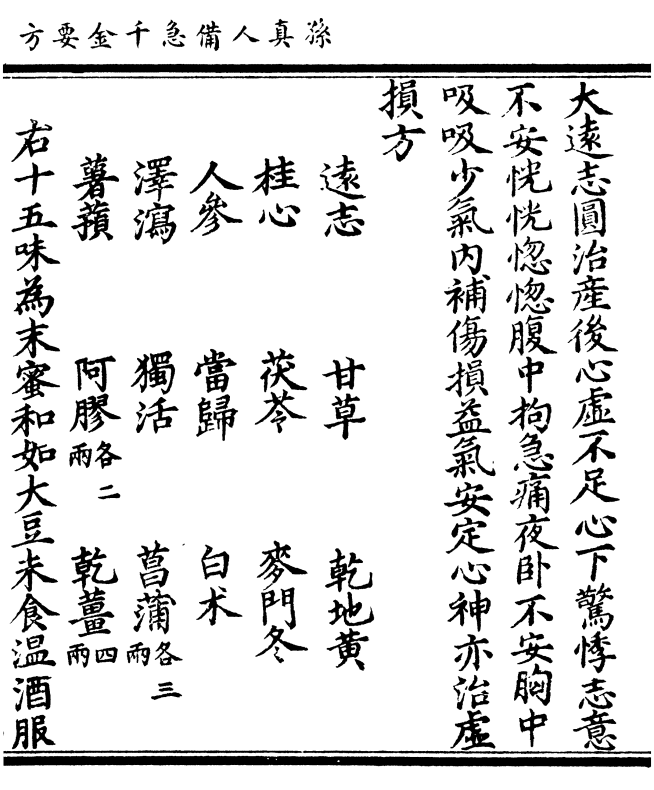 孫真人備急千金要方
大遠志圓治産後心虛不足心下驚悸志意
不安恍恍惚惚腹中拘急痛夜卧不安胸中
吸吸少氣内補傷損益氣安定心神亦治虛
損方
遠志 甘草 乾地黄
桂心 茯苓 麥門冬
人參 當歸 白术
澤瀉 獨活 菖蒲各三兩
薯蕷 阿膠各二兩 乾薑四兩
右十五味為末蜜和如大豆未食温酒服